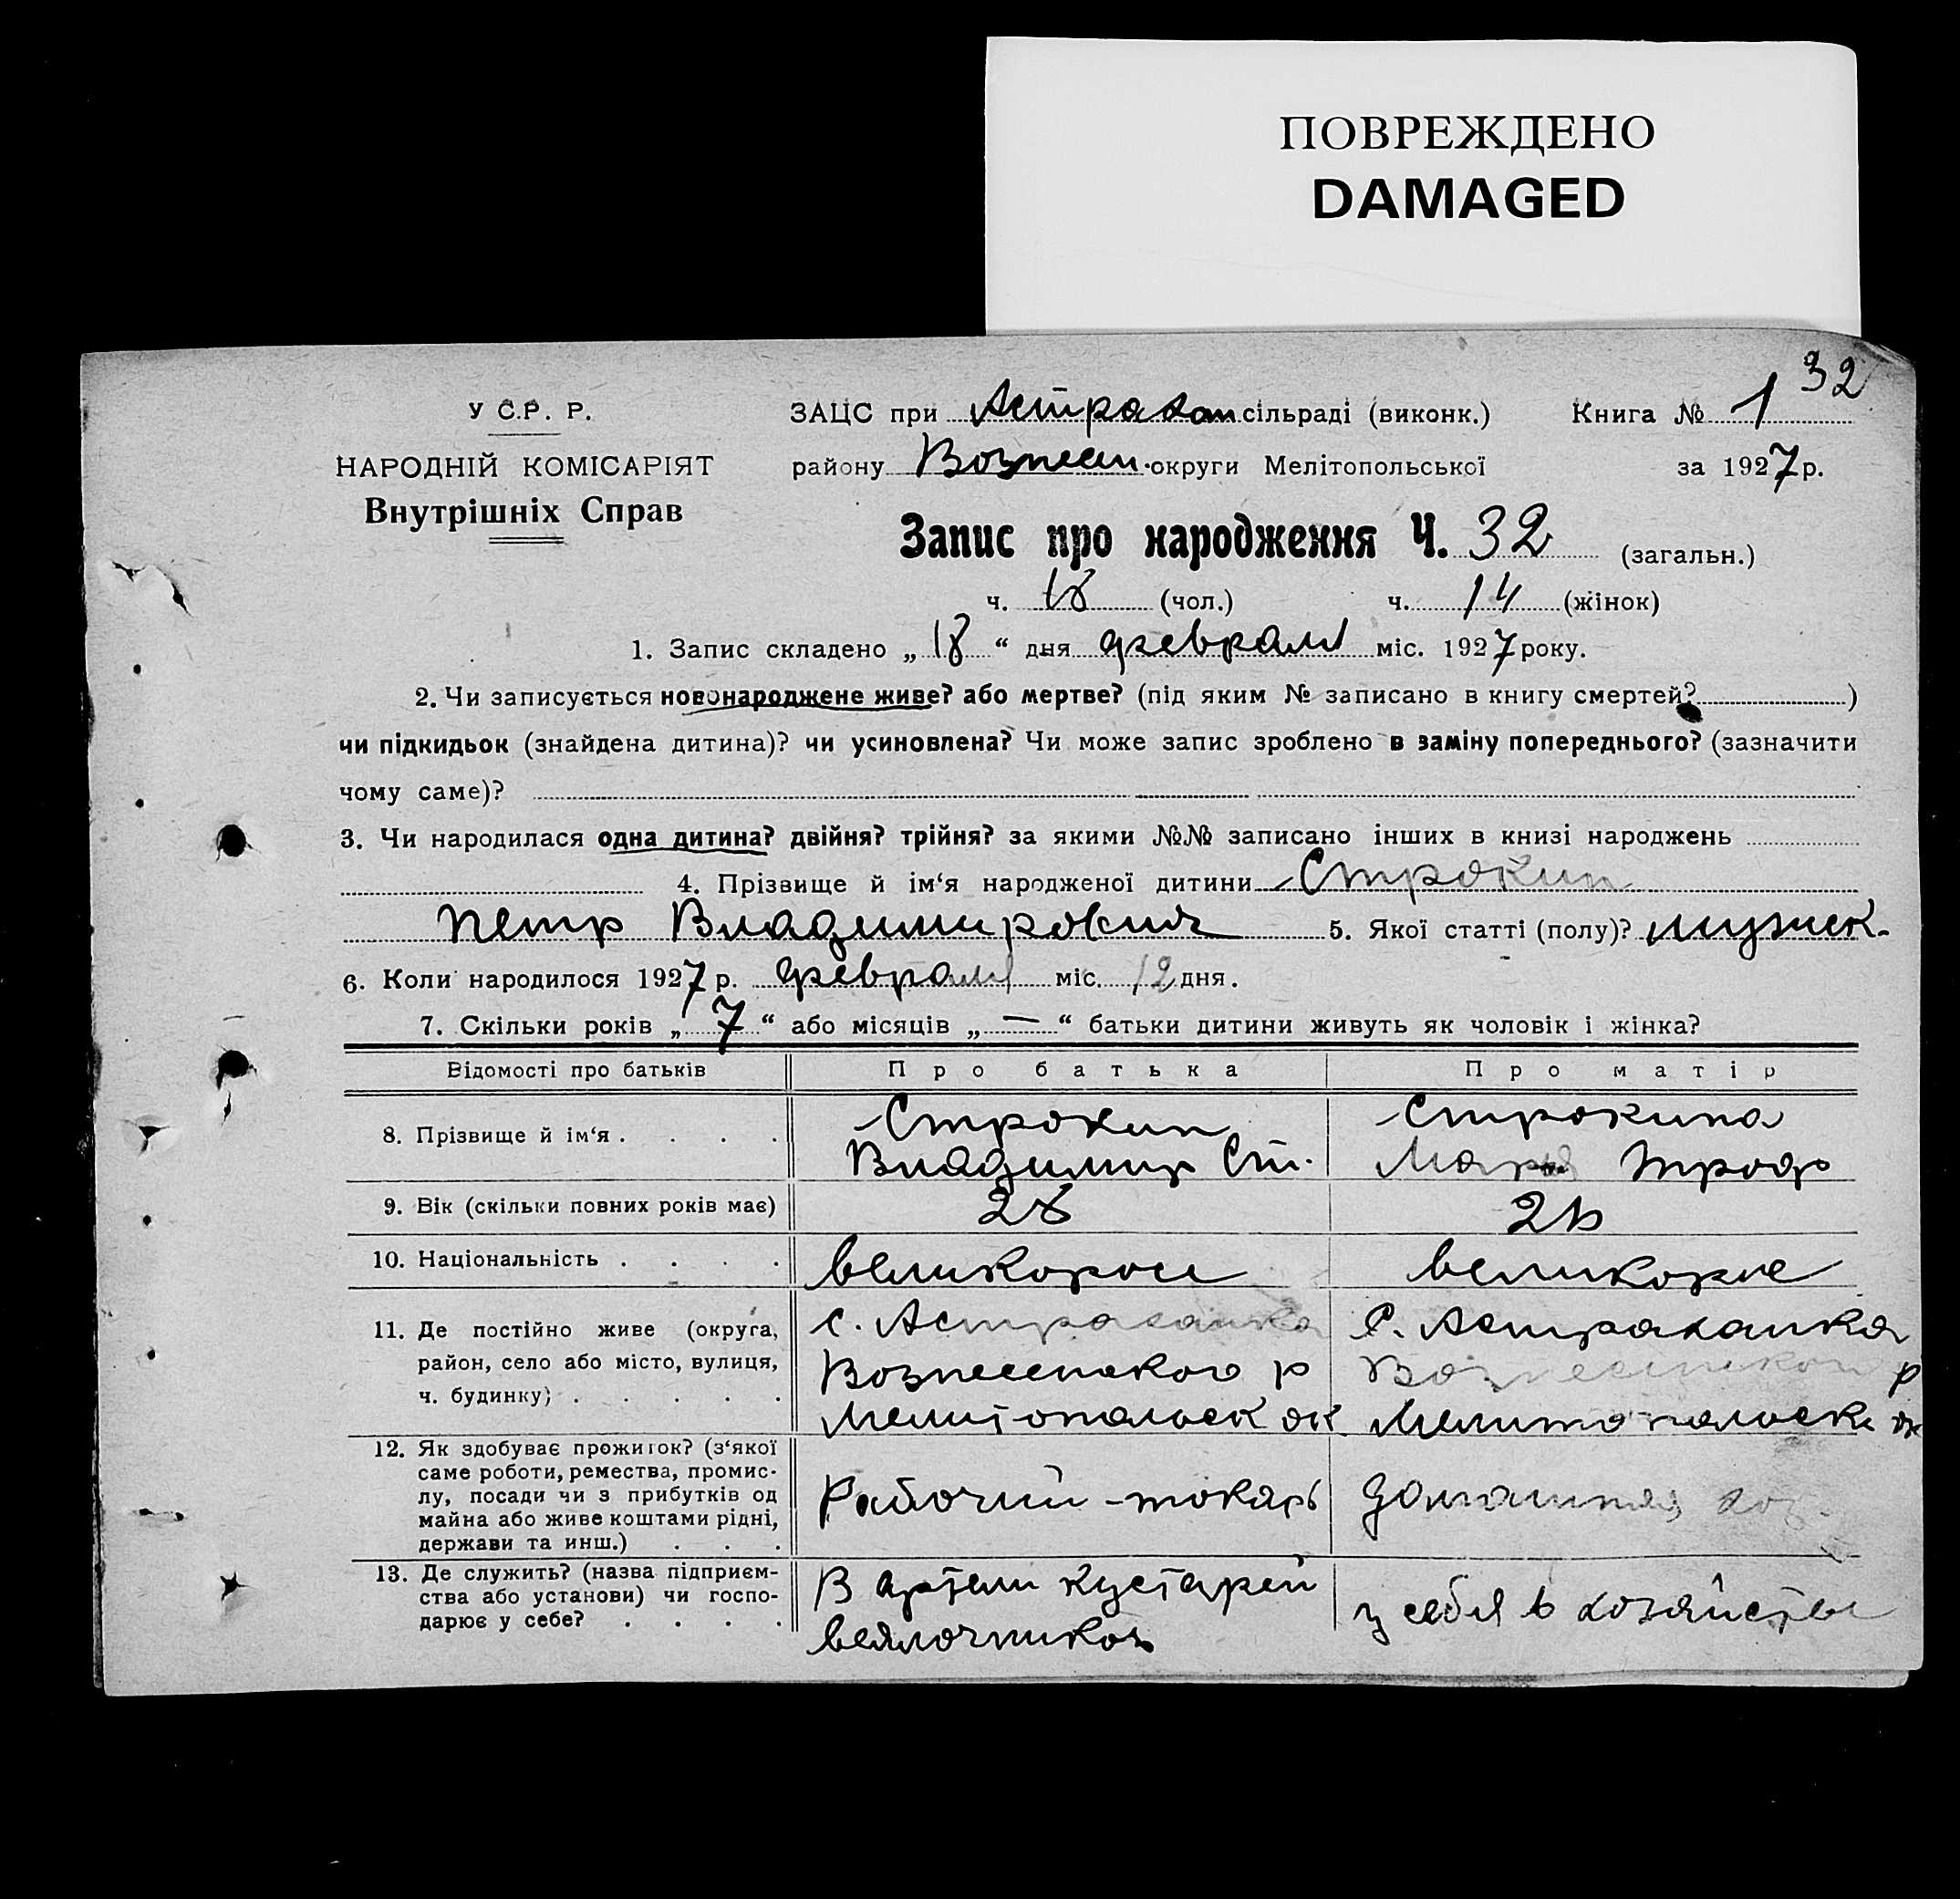 ПОВРЕЖДЕНО
DAMAGED
32
У С.Р. Р.
ЗАЦС при Астрахан сільраді (виконк.) Книга № 1
НАРОДНІЙ КОМІСАРІЯТ
району Вознесен. округи Мелітопольської за 1927 р.
Внутрішніх Справ
Запис про народження Ч. 32 (загальн.)
ч. 18 (чол.) ч. 14 (жінок)
1. Запис складено „ 18 “ дня февраля міс. 1927 року.
2. Чи записується новонароджене живе? або мертве? (під яким № записано в книгу смертей? )
чи підкидьок (знайдена дитина)? чи усиновлена? Чи може запис зроблено в заміну попереднього? (зазначити
чому саме)?
3. Чи народилася одна дитина? двійня? трійня? за якими №№ записано інших в книзі народжень
4. Прізвище й ім‘я народженої дитини Строкин
Петр Владимирович 5. Якої статті (полу)? мужск.
6. Коли народилося 1927 р. февраля міс. 12 дня.
7. Скільки років „ 7 “ або місяців „ — “ батьки дитини живуть як чоловік і жінка?
Відомості про батьків Про батька Про матір
8. Прізвище й ім‘я . . . . Строкин Строкина
Владимир Ст. Мария Троф
9. Вік (скільки повних років має) 28 26
10. Національність . . . . великоросс великорос
11. Де постійно живе (округа, с. Астраханка С. Астраханка
район, село або місто, вулиця, Вознесенского р Вознесенского р
ч. будинку) . . . . . Мелитопольск ок Мелитопольск ок
12. Як здобуває прожиток? (з‘якої
саме роботи, ремества, промис-
лу, посади чи з прибутків од Рабочий - токарь домашняя хоз.
майна або живе коштами рідні,
держави та инш.) . . .
13. Де служить? (назва підприєм- В артели кустарей
ства або установи) чи госпо- у себя в хозяйстве
дарює у себе? . . . . веялочников